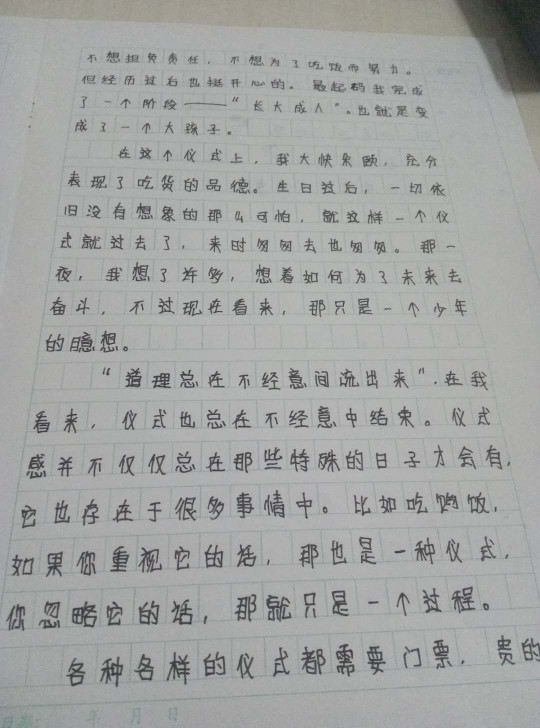 不想担负责任，不想为了吃饭而努力。
但经历过后也挺开心的。最起码我完成
了一个阶段——“长大成人”。也就是变
成了一个大孩子。
在这个仪式上，我大快朵颐，充分
表现了吃货的品德。生日过后，一切依
旧没有想象的那么可怕，就这样一个仪
式就过去了，来时匆匆去也匆匆。那一
夜，我想了许多，想着如何为了未来去
奋斗，不过现在看来，那只是一个少年
的臆想。
“道理总在不经意间流出来”.在我
看来，仪式也总在不经意中结束。仪式
感并不仅仅总在那些特殊的日子才会有，
它也存在于很多事情中。比如吃晚饭，
如果你重视它的话，那也是一种仪式，
你忽略它的话，那就只是一个过程。
各种各样的仪式都需要门票，贵的
日期： 年 月 日